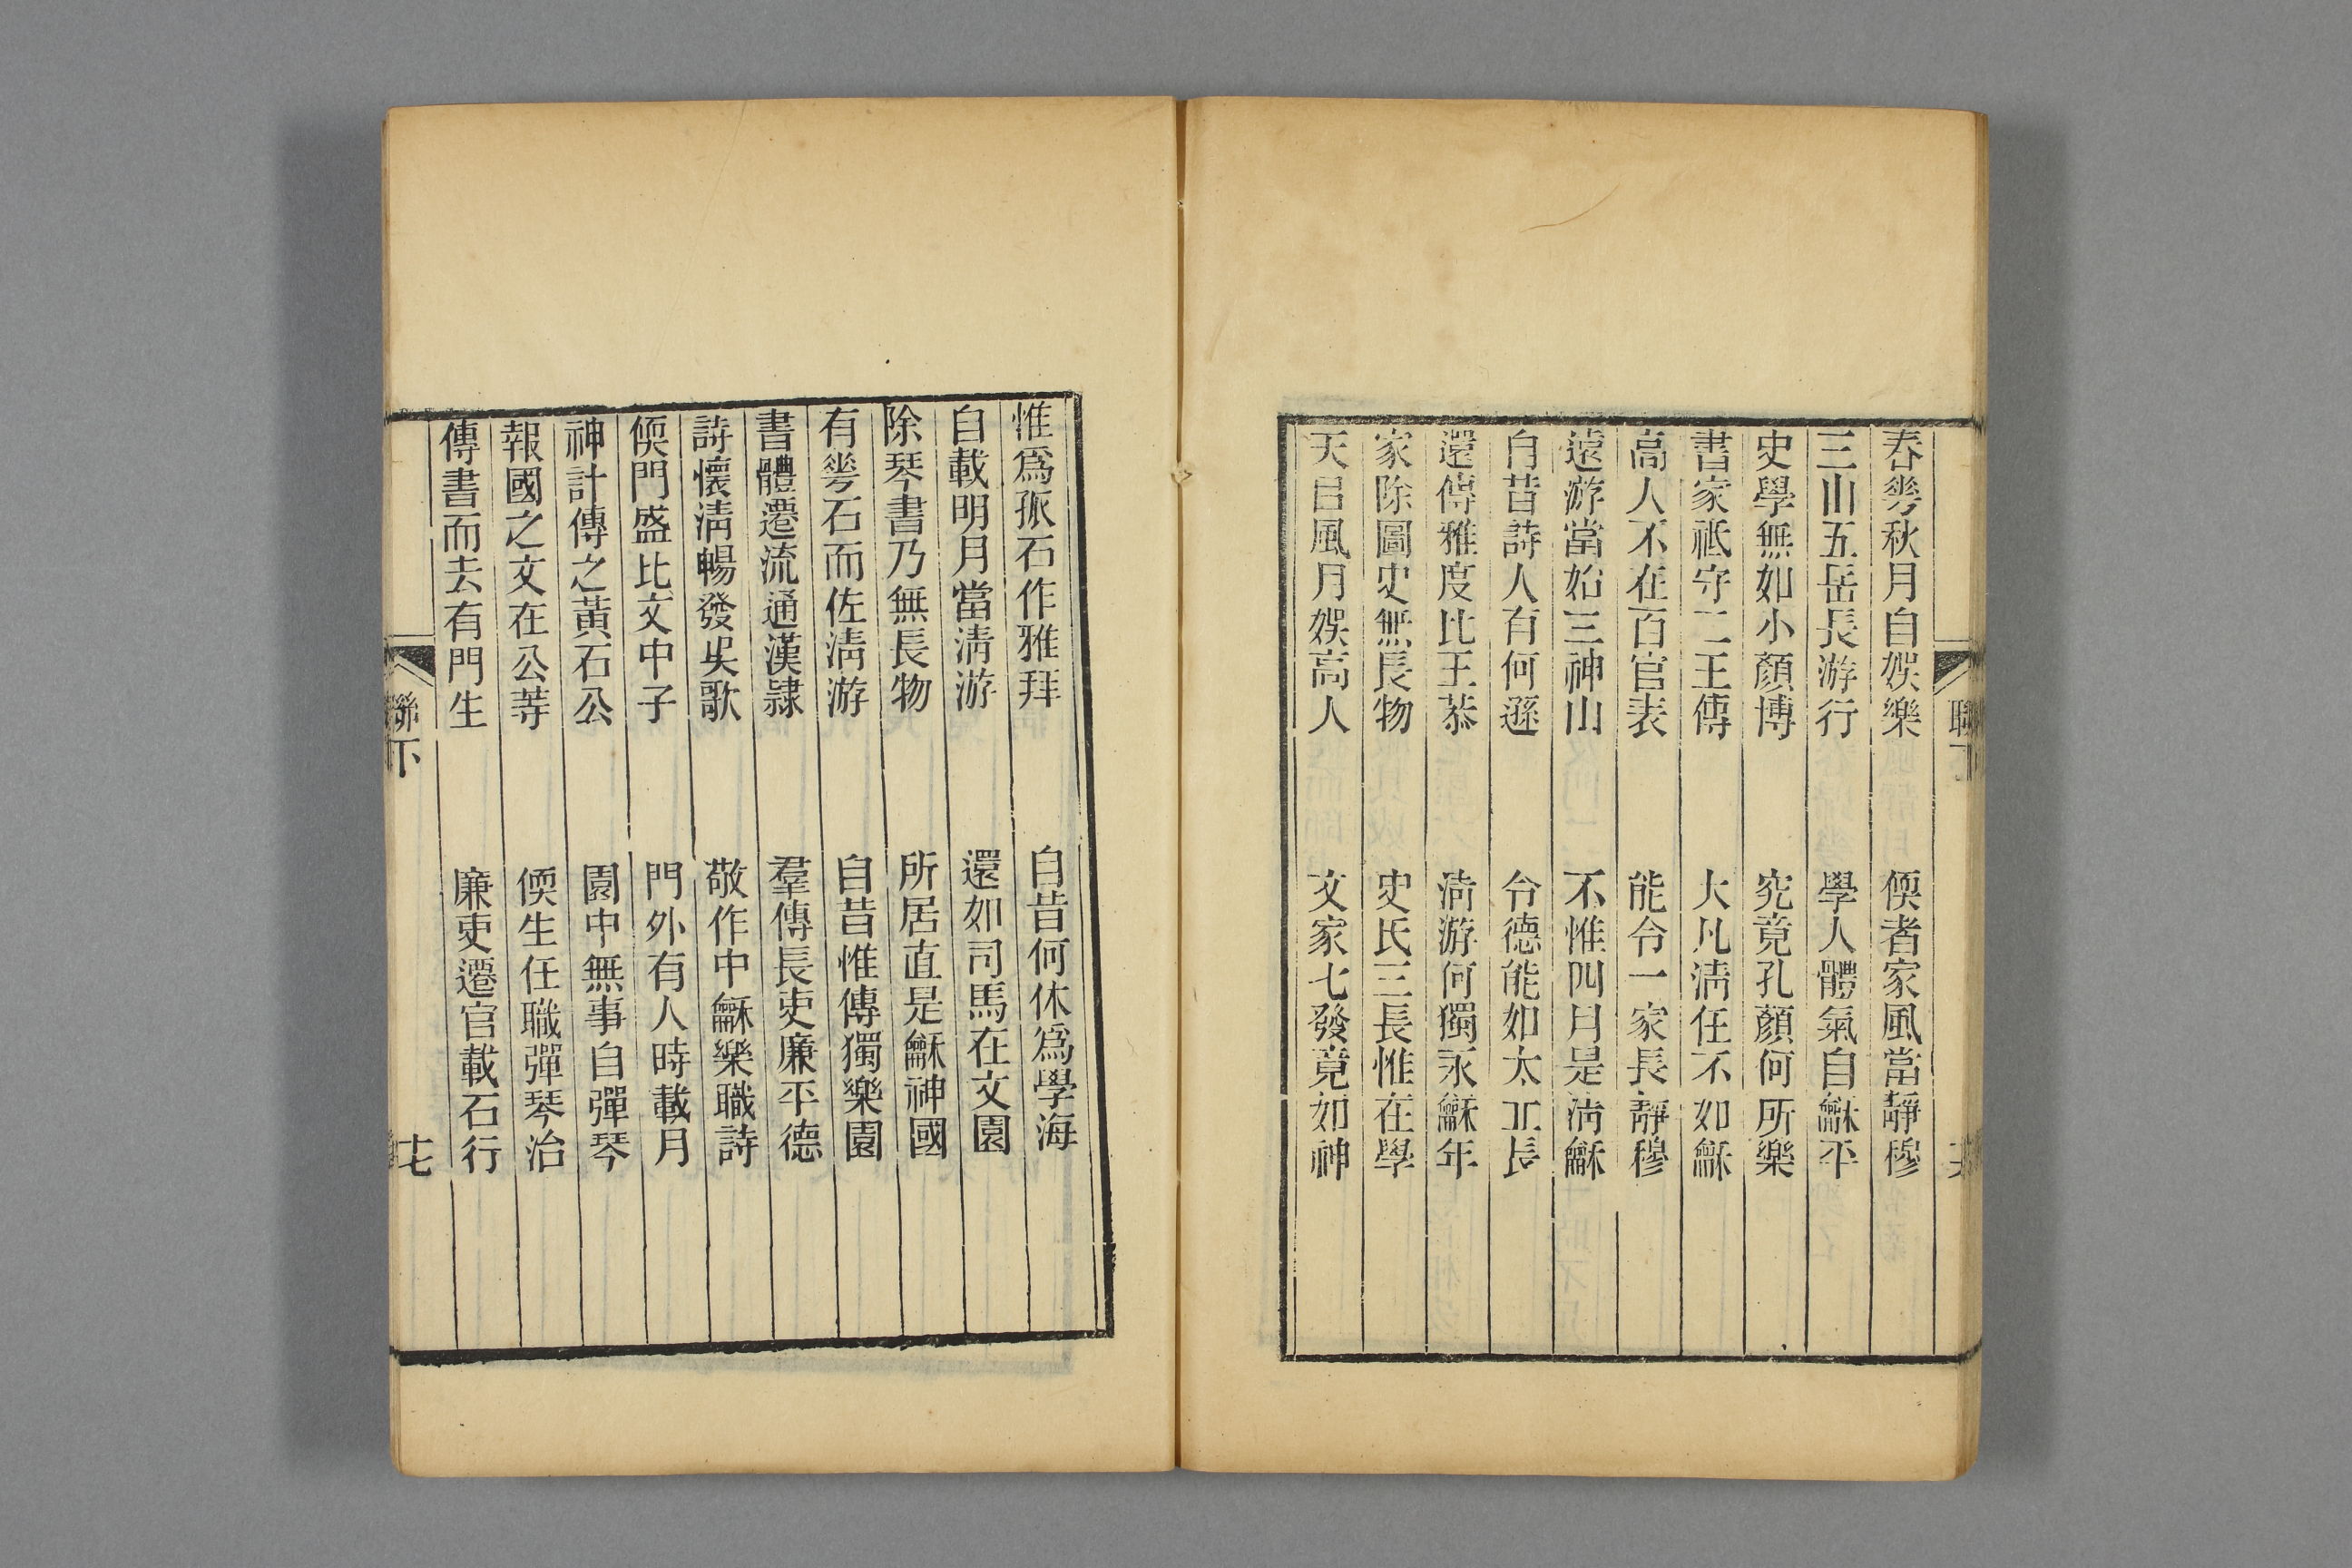 春𠌶秋月自娛樂　偄者家風當靜穆
三山五岳長游行　學人體氣自龢平
史學無如小顏博　究竟孔顏何所樂
書家祗守二王傳　大凡淸任不如龢
高人不在百官表　能令一家長靜穆
遠游當始三神山　不惟四月是淸龢
自昔詩人有何遜　令德能如太丘長
還傳雅度比王恭　淸游何獨永龢年
家除圖史無長物　史氏三長惟在學
天㠯風月娛高人　文家七發竟如神
惟爲孤石作雅拜　自昔何休爲學海
自載明月當淸游　還如司馬在文園
除琴書乃無長物　所居直是龢神國
有𠌶石而佐淸游　自昔惟傳獨樂園
書體遷流通漢隷　羣傳長吏廉平德
詩懷淸暢發吳歌　敬作中龢樂職詩
偄門盛比文中子　門外有人時載月
神計傳之黃石公　園中無事自彈琴
報國之文在公等　偄生任職彈琴治
傳書而去有門生　廉吏遷官載石行
聯下
十七